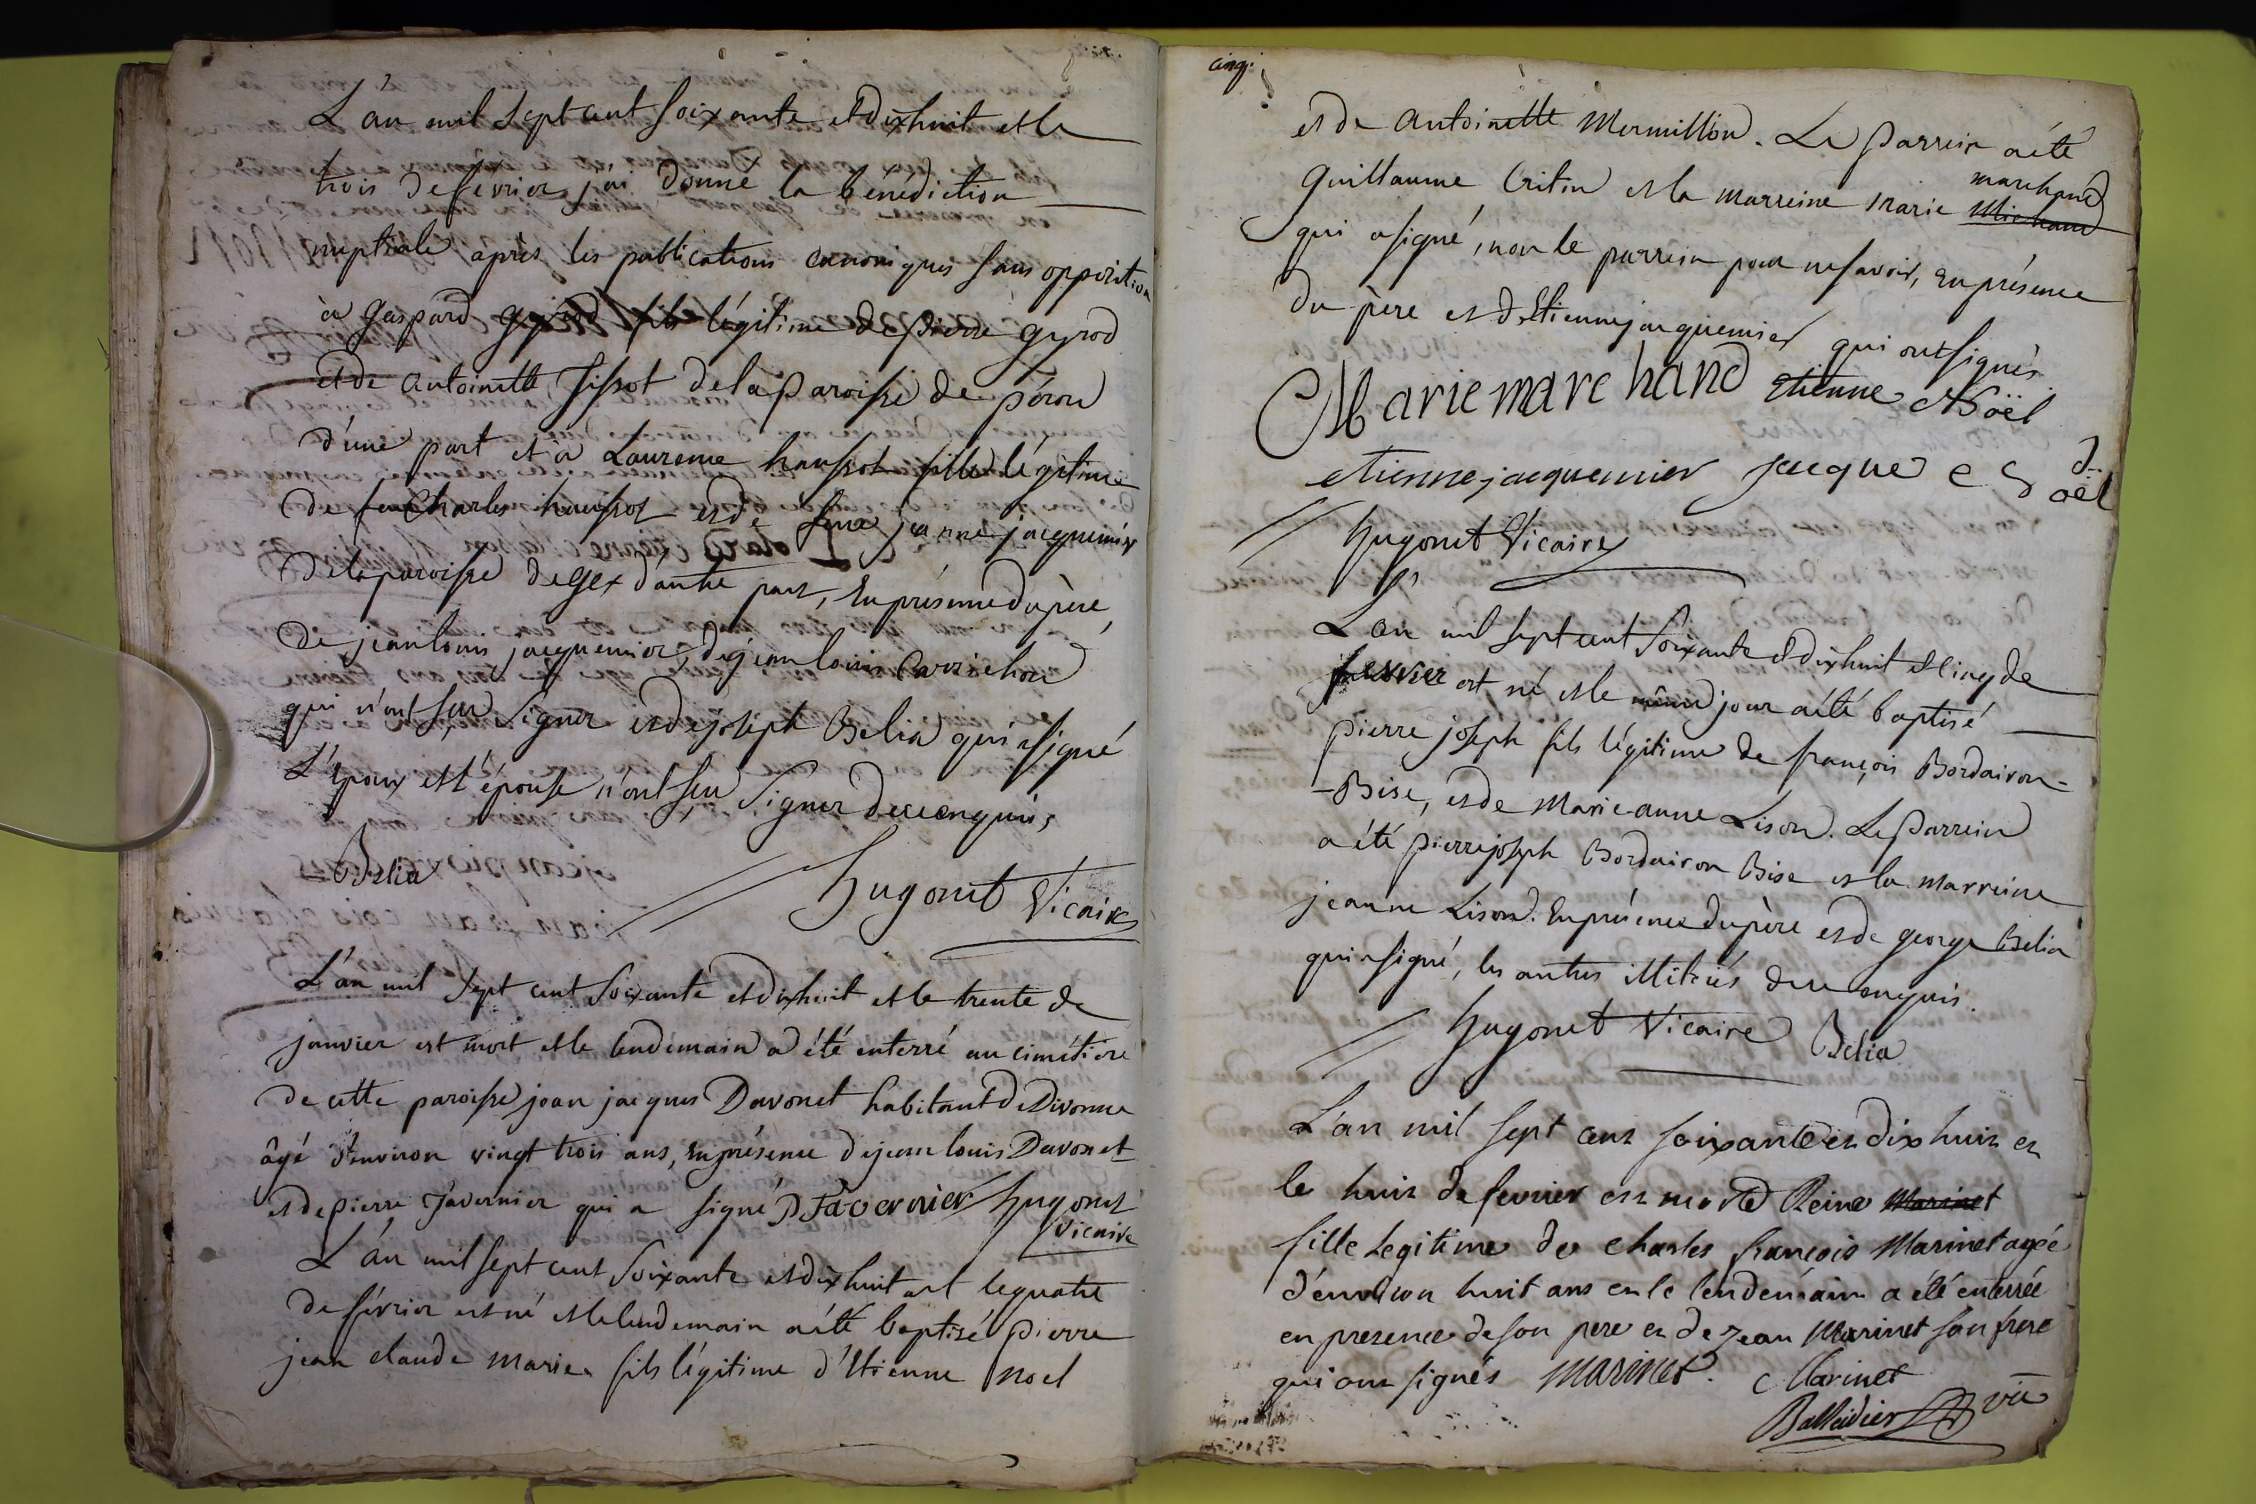 L'an mil sept cent soixante et dixhuit et le
trois de février j'ai donné la bénédiction
nuptiale après les publications canoniques sans opposition
à Gaspard gyrod fils légitime de pierre gyrod
et de antoinette Jissot de la paroisse de péron
d'une part et à Laurence haussot fille légitime
de feu Charles haussot et de feue jeanne jacquemier
de la paroisse de gex d'autre part, En présence du père,
de jean louis jacquemier, de jean louis Carrichon
qui n'ont sçu signer et de joseph Belia qui a signé
L'époux et l'épouse n'ont sçu signer de ce enquis,
Belia
hugonet Vicaire
L'an mil sept cent soixante et dixhuit et le trente de
janvier est mort et le lendemain a été enterré au cimetière
de cette paroisse jean jacques Davonet habitant de Divonne
âgé d'environ vingt trois ans, en présence de jean louis Davonet
et de pierre Tavernier qui a signé P Tavernier hugonet
Vicaire
L'an mil sept cent soixante et dixhuit et le quatre
de février est né et le lendemain a été baptisé pierre
jean claude marie fils légitime d'Etienne Noel
cinq.
et de antoinette Mermillon. Le parrein a été
marchand
guillaume Critin et la marreine marie Michaud
qui a signé, non le parrein pour ne savoir, En présence
du père et d'Etienne jacquemier qui ont signés
Marie marchand Etienne Noël
etienne jacquemier jacque
hugonet Vicaire
L'an mil sept cent soixante et dixhuit et cinq de
fevrier est né et le même jour a été baptisé
pierre joseph fils légitime de françois Bordairon-
-Bise, et de Marie anne Lison. Le parrein
a été pierre joseph Bordairon Bise et la marreine
jeanne Lison. En présence du père et de george Belia
qui a signé, les autres illiterés de ce enquis.
hugonet Vicaire Belia
L'an mil sept cent soixante et dix huit et
le huit de fevrier est morte Reine Marinet
fille legitime de charles françois Marinet agée
d'environ huit ans et le lendemain a été enterrée
en presence de son pere et de jean Marinet son frere
qui ont signés Marinet. C Marinet
Balleidier vic